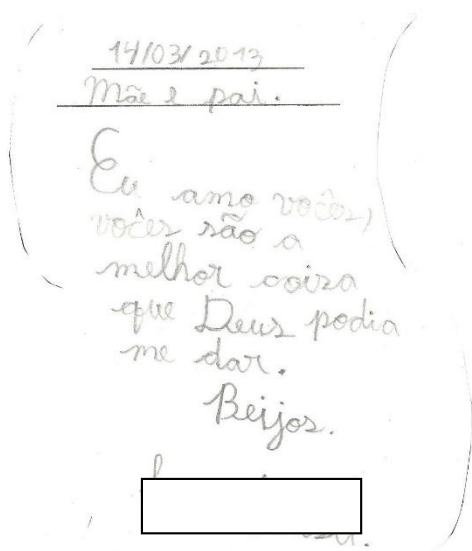 14/03/2013
Mãe e pai.
Eu amo vocês,
vocês são a
melhor coisa
que Deus podia
me dar.
Beijos.